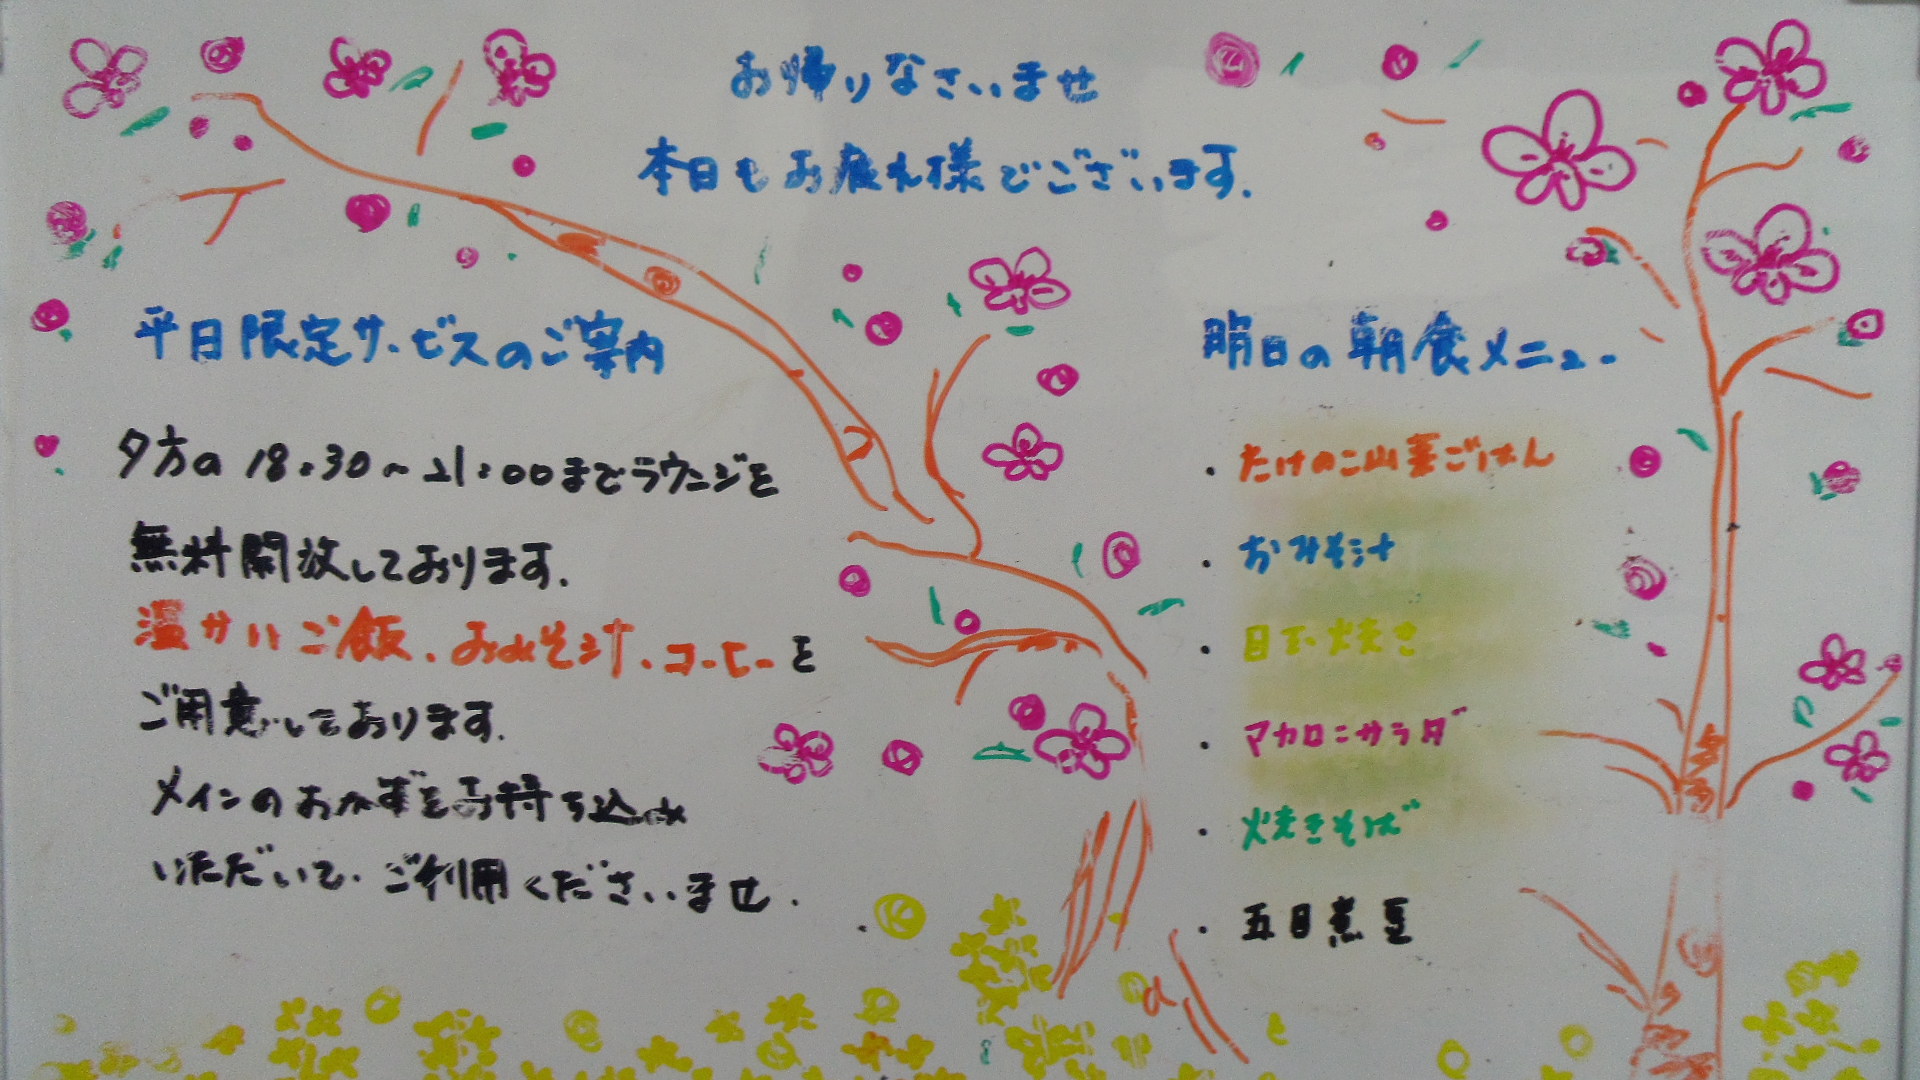 お帰りなさいませ
本日もお疲れ様でございます.
平日限定サービスのご案内
夕方の18:30~21:00までラウンジを
無料開放しております.
温かいご飯、おみそ汁、コーヒーを
ご用意しております.
メインのおかずをお持ち込み
いただいて、ご利用くださいませ.
明日の朝食メニュー
・たけのこ山菜ごはん
・おみそ汁
・目玉焼き
・マカロニサラダ
・焼きそば
・五目煮豆